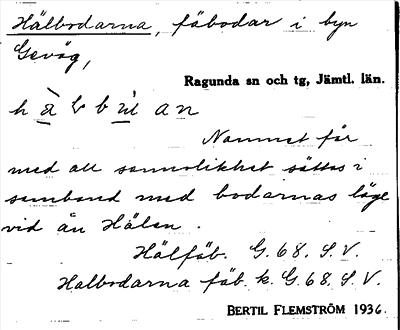 Hälbodarna, fäbodar i byn
Gevåg,
Ragunda sn och tg, Jämtl. län.
Namnet får
med all sannolikhet sättas i
samband med bodarnas läge
vid ån Hälån.
Hälfäb. G. 68. S. V.
Halbodarna fäb. k. G. 68. S. V.
BERTIL FLEMSTRÖM 1936.